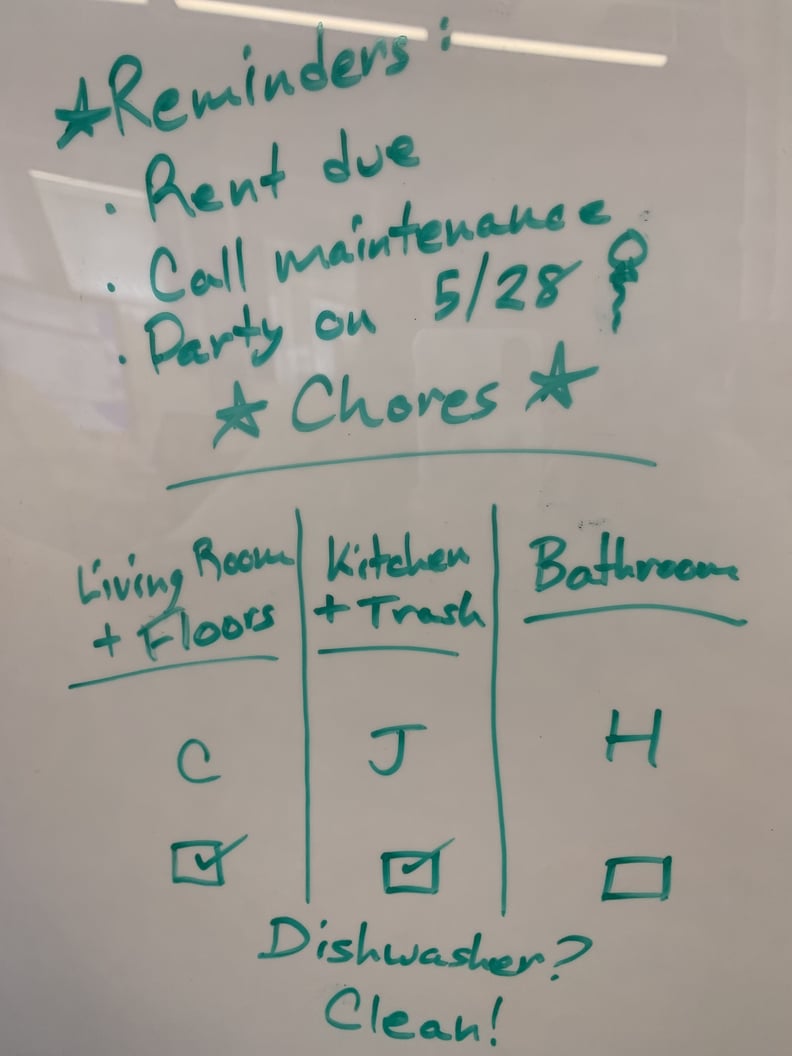 ★Reminders:
· Rent due
· Call maintenance
· Party on 5/28
★ Chores ★
Living Room
+ Floors
Kitchen
+ Trash
Bathroom
C
J
H
☑
☑
☐
Dishwasher?
Clean!